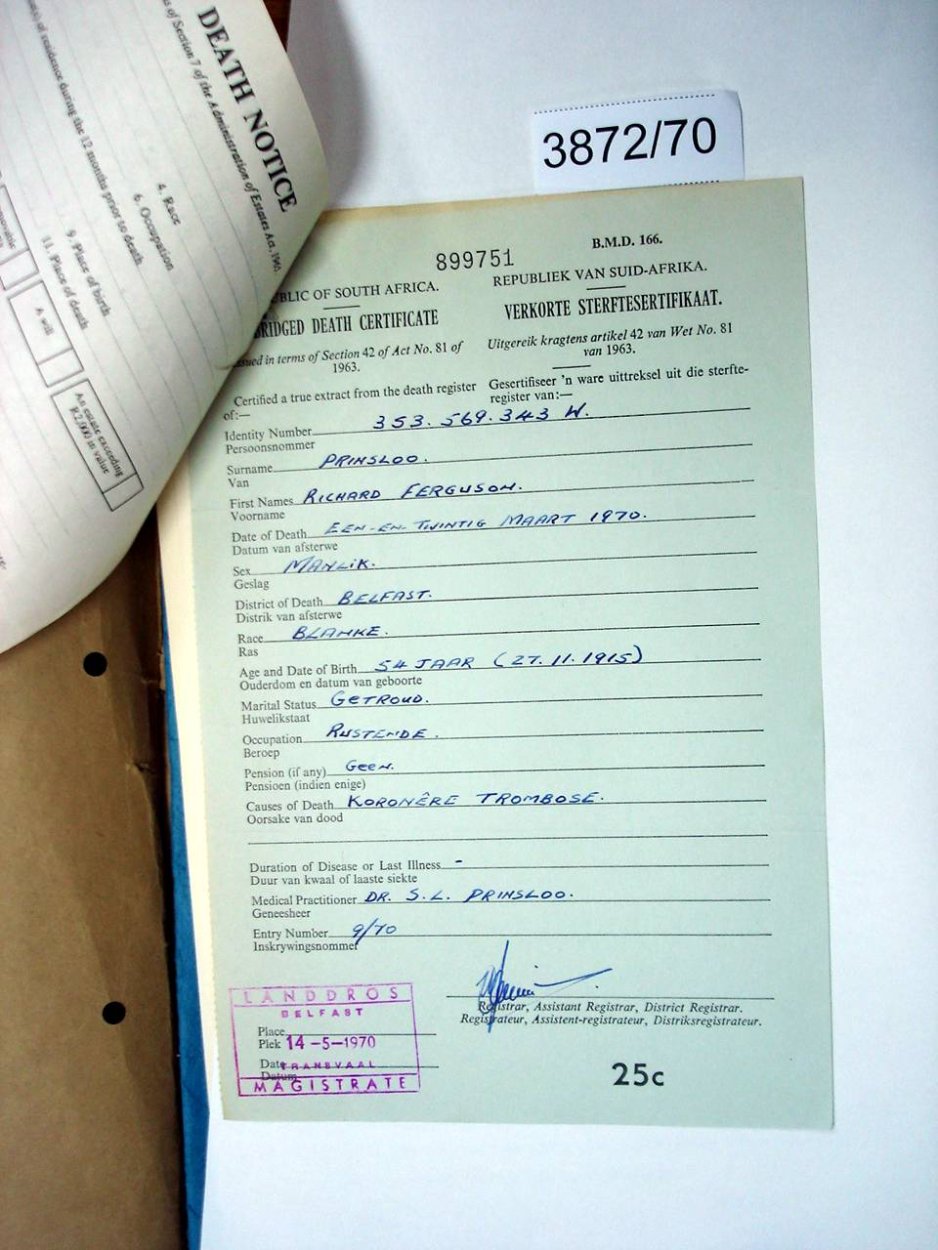 DEATH NOTICE
s of Section 7 of the Administration of Estates Act, 1965.
of residence during the 12 months prior to death
4. Race
6. Occupation
9. Place of birth
11. Place of death
A will
An estate exceeding
R2,000 in value
3872/70
899751
B.M.D. 166.
BLIC OF SOUTH AFRICA.
REPUBLIEK VAN SUID-AFRIKA.
RIDGED DEATH CERTIFICATE
VERKORTE STERFTESERTIFIKAAT.
ssued in terms of Section 42 of Act No. 81 of
1963.
Uitgereik kragtens artikel 42 van Wet No. 81
van 1963.
Certified a true extract from the death register
of:—
Gesertifiseer 'n ware uittreksel uit die sterfte-
register van:—
Identity Number 353.569.343 W.
Persoonsnommer
Surname PRINSLOO.
Van
First Names RICHARD FERGUSON.
Voorname
Date of Death EEN-EN-TWINTIG MAART 1970.
Datum van afsterwe
Sex MANLIK.
Geslag
District of Death BELFAST.
Distrik van afsterwe
Race BLANKE.
Ras
Age and Date of Birth 54 JAAR (27.11.1915)
Ouderdom en datum van geboorte
Marital Status GETROUD.
Huwelikstaat
Occupation RUSTENDE.
Beroep
Pension (if any) GEEN.
Pensioen (indien enige)
Causes of Death KORONÊRE TROMBOSE.
Oorsake van dood
Duration of Disease or Last Illness -
Duur van kwaal of laaste siekte
Medical Practitioner DR. S.L. PRINSLOO.
Geneesheer
Entry Number 9/70
Inskrywingsnommer
Registrar, Assistant Registrar, District Registrar.
Registrateur, Assistent-registrateur, Distriksregistrateur.
LANDDROS
BELFAST
Place
Plek 14-5-1970
Date TRANSVAAL
Datum
MAGISTRATE
25c